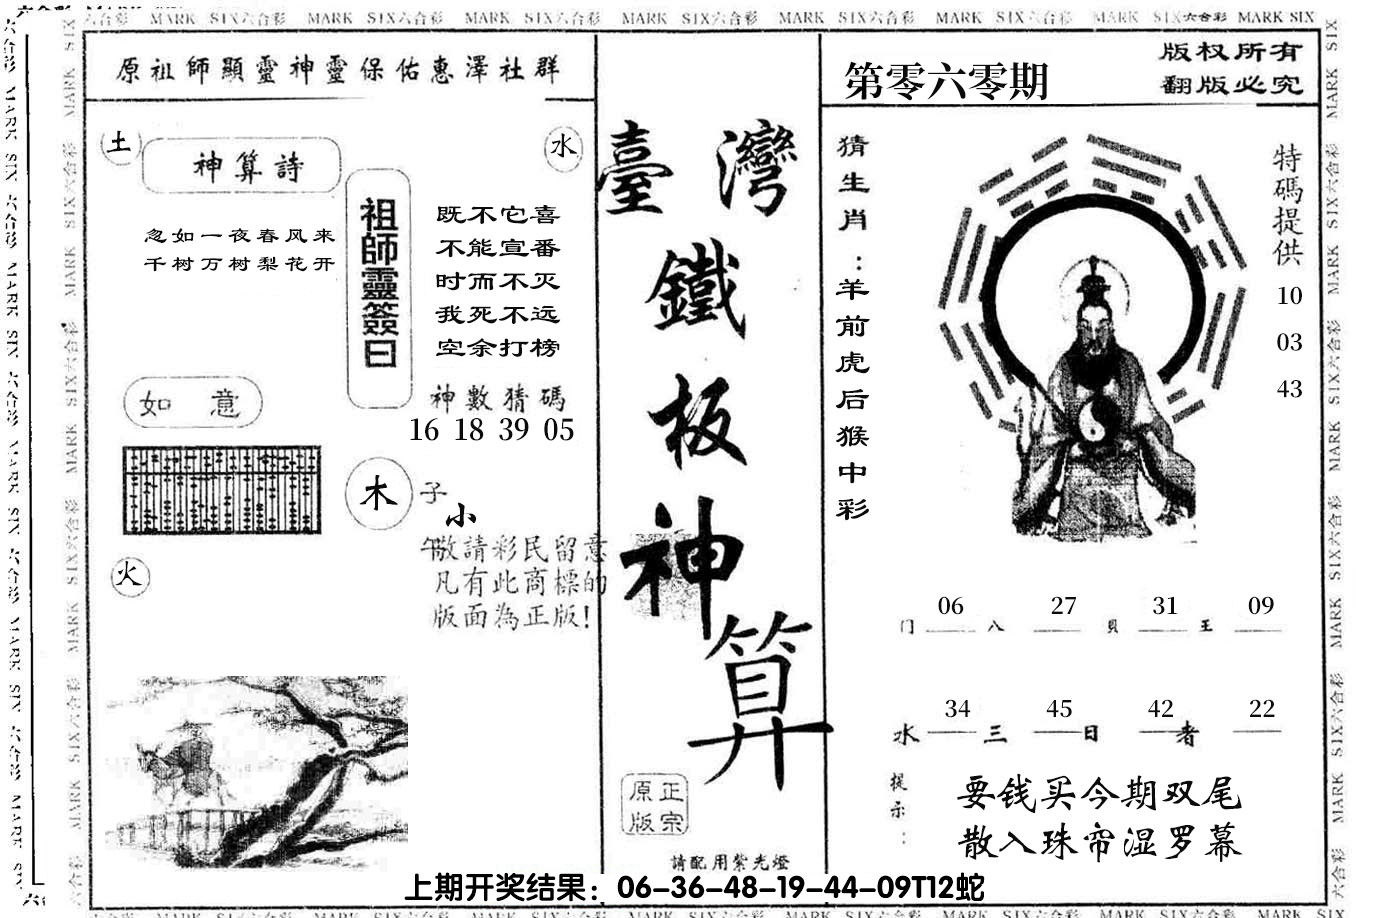 MARK SIX六合彩 MARK SIX六合彩 MARK SIX六合彩 MARK SIX六合彩 MARK SIX六合彩 MARK SIX六合彩 MARK SIX六合彩 MARK SIX
原祖師顯靈神靈保佑惠澤社群
土
神算詩
忽如一夜春风来
千树万树梨花开
水
祖師靈簽曰
既不它喜
不能宣番
时而不灭
我死不远
空余打榜
神數猜碼
16 18 39 05
如 意
木
子
小
午
敬請彩民留意
凡有此商標的
版面為正版!
火
臺灣
鐵
板
神
算
原正
版宗
請配用紫光燈
第零六零期
版权所有
翻版必究
猜生肖:羊前虎后猴中彩
特碼提供
10
03
43
06 27 31 09
门 八 貝 王
34 45 42 22
水 三 日 者
提示:
要钱买今期双尾
散入珠帘湿罗幕
上期开奖结果：06-36-48-19-44-09T12蛇